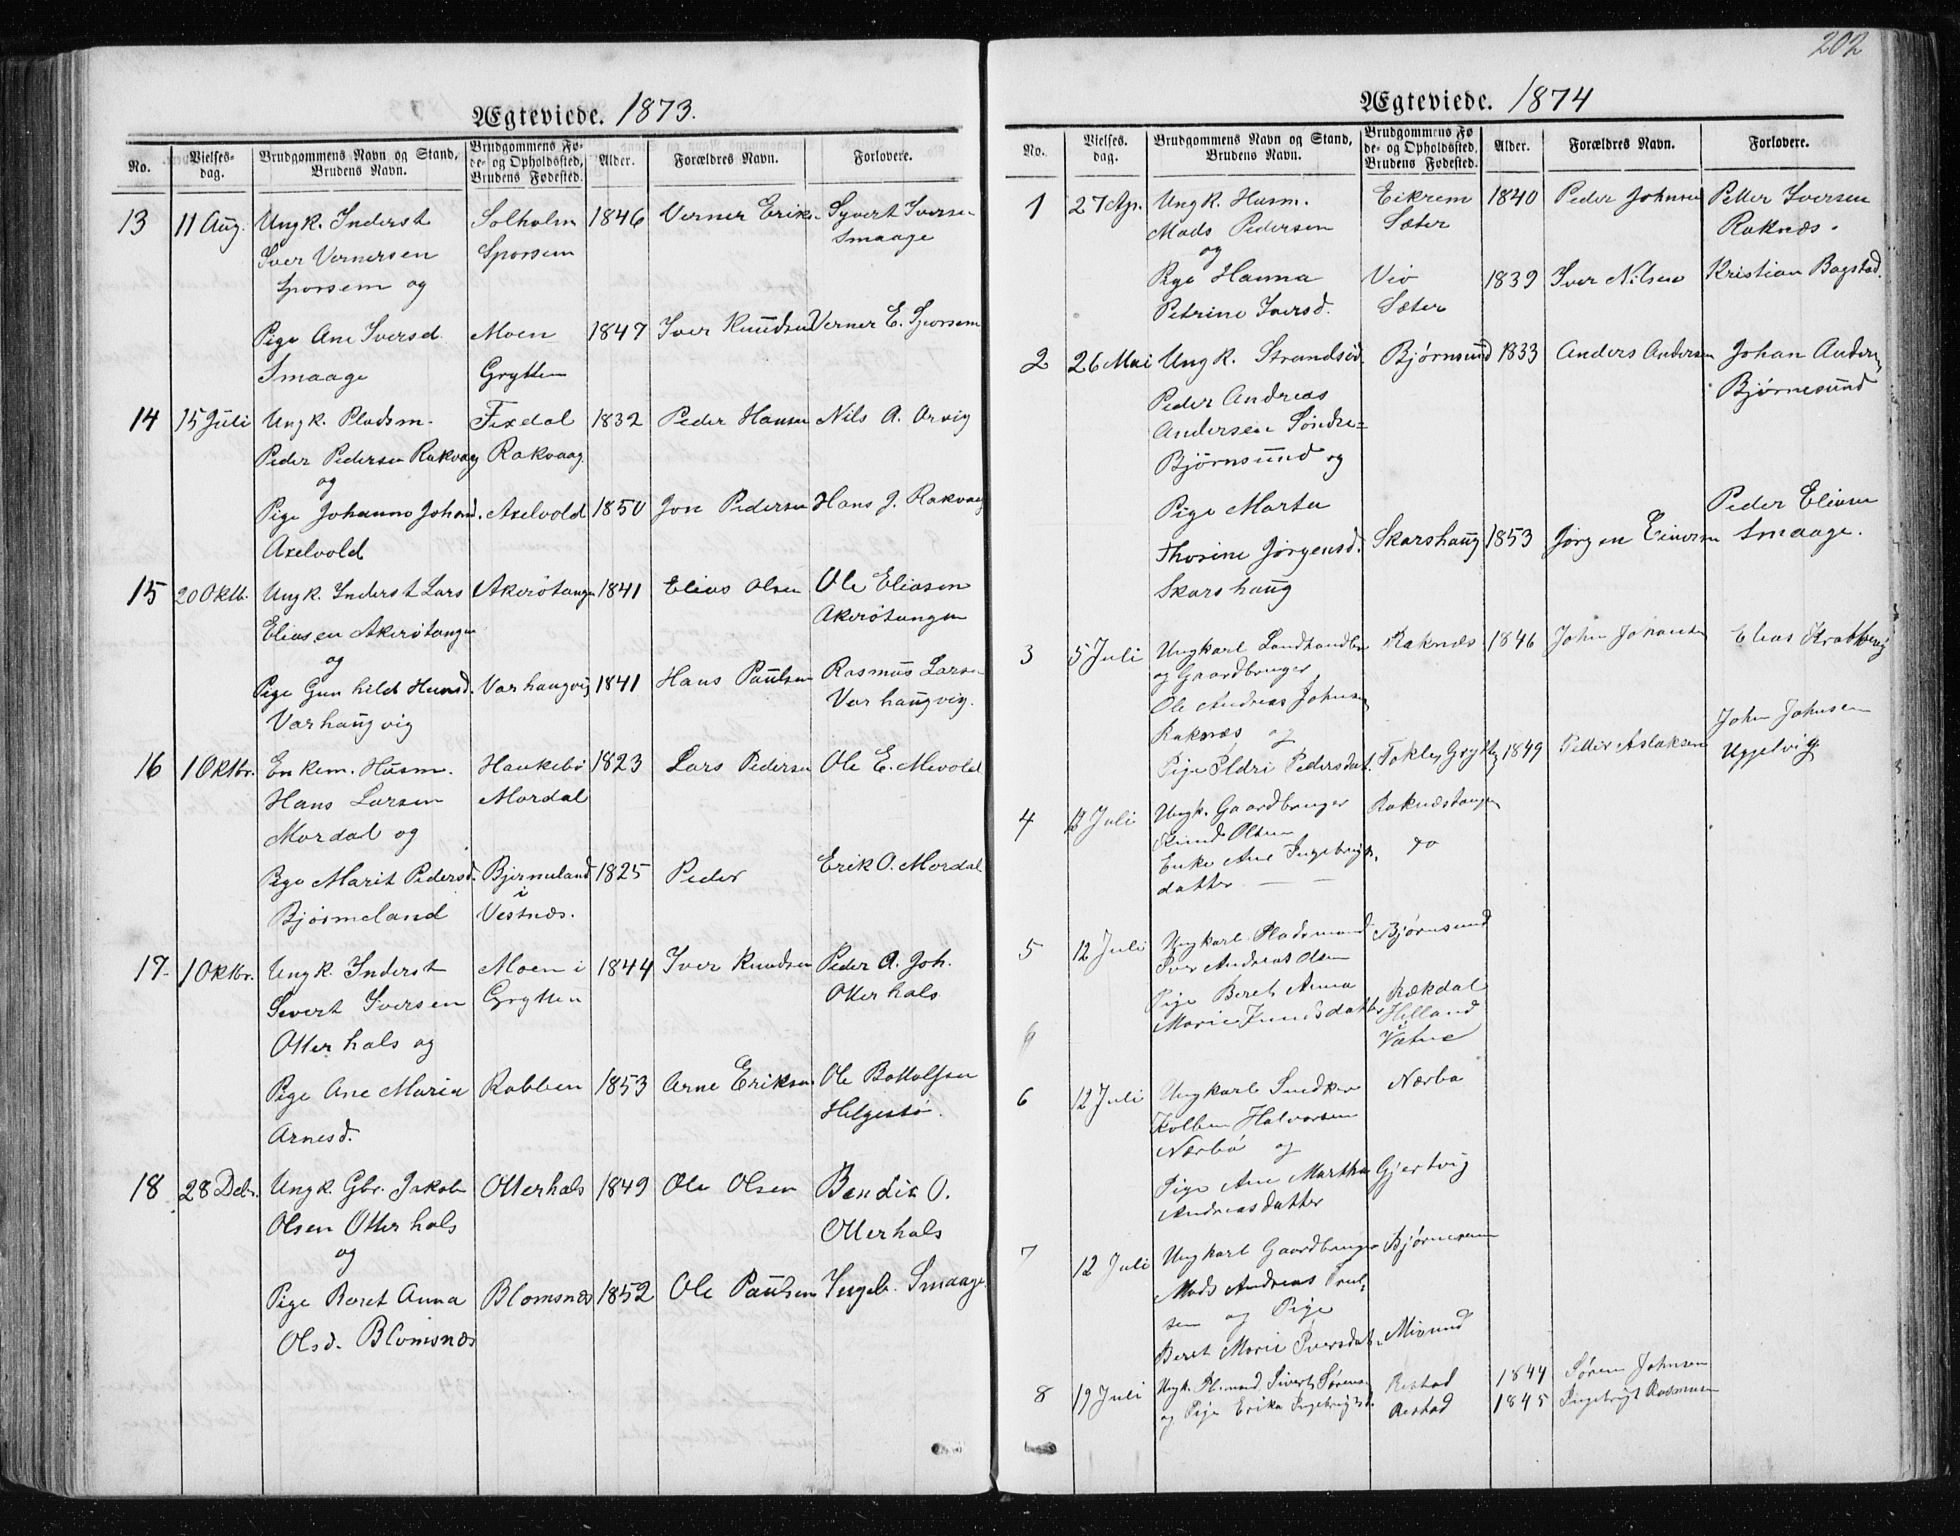 Ægteviede. 1873.
No. Vielses-dag. Brudgommens Navn og Stand, Brudens Navn. Brudgommens Fø-de- og Opholdssted, Brudens Fødested. Alder. Forældres Navn. Forlovere.
13 11 Aug. Ungk. Inderst Solholm 1846 Verner Eriks. Syvert Iverse-
Iver Vernersen Sporsem Smaage
Sporsem og
Pige Ane Iversd. Moen 1847 Iver Knudsen Verner E. Sporsem
Smaage Grytten
14 15 Juli Ungk. Pladsm. Fixdal 1832 Peder Hansen Nils A. Orvig
Peder Pedersen Rakvaag Rakvaag
og
Pige Johanna Johnd. Axelvold 1850 Jon Pedersen Hans J. Rakvaag
Axelvold
15 20 Oktb. Ungk. Inderst Lars Akerøtangen 1841 Elias Olsen Ole Eliasen
Eliasen Akerøtangen Akerøtangen
og
Pige Gunhild Hansd. Varhaugvig 1841 Hans Paulsen Rasmus Larsen
Varhaugvig Varhaugvig.
16 1 Oktbr. Enkem. Husm. Haukebø 1823 Lars Pedersen Ole E. Mevold
Hans Larsen Mordal
Mordal og
Pige Marit Pedersd. Bjermeland 1825 Peder Erik O. Mordal
Bjørmeland i Vestnæs.
17 1 Oktbr. Ungk. Inderst Moen i 1844 Iver Knudsen Peder A. Joh.
Sivert Iversen Grytten Otterhals
Otterhals og
Pige Ane Maria Rabben 1853 Arne Eriksen Ole Bottolfsen
Arnesd. Helgestø.
18 28 Debr. Ungk. Gbr. Jakob Otterhals 1849 Ole Olsen Bendix O.
Olsen Otterhals Otterhals
og
Pige Beret Anna Blomsnæs 1852 Ole Paulsen Ingeb. Smaage.
Olsd. Blomsnæs
202
Ægteviede. 1874
No. Vielses-dag. Brudgommens Navn og Stand, Brudens Navn. Brudgommens Fø-de- og Opholdssted, Brudens Fødested. Alder. Forældres Navn. Forlovere.
1 27 Ap. Ungk. Husm. Eikrem 1840 Peder Johnsen Petter Iversen
Mads Pedersen Sæter Raknæs.
og
Pige Hanna Vio 1839 Iver Nilsen Kristian Bogstad.
Petrine Iversd. Sæter
2 26 Mai Ungk. Strandsid. Bjørnsund 1833 Anders Andersen Johan Anders.
Peder Andreas Bjørnesund
Andersen Søndre-
Bjørnsund og
Pige Marta Peder Eliasen
Thorine Jørgensd. Skarshaug 1853 Jørgen Einersen Smaage.
Skarshaug
3 5 Juli Ungkarl Landhandler Raknæs 1846 John Johansen Elias
og Gaardbruger
Ole Andreas Johnsen
Raknæs og John Johnsen
Pige Eldri Pedersdat. Grytten 1849 Petter Aslaksen
4 12 Juli Ungk. Gaardbruger Raknæstangen
Knud Olsen
Enke Ane Ingebrigts- do
datter
5 12 Juli Ungkarl Pladsmand Bjørnsund
Iver Andreas Olsen
Pige Beret Anna Rækdal
Marie Knudsdatter Helland
i Vatne
6 12 Juli Ungkarl Snedker Nærbø
Kolben Halvorsen
Nærbø og
Pige Ane Martha Gjertvig
Andreasdatter
7 12 Juli Ungkarl Gaardbruger Bjørnesem
Mads Andreas
sen og Pige
Beret Marie Iversdat. Misund
8 19 Juli Ungk. Plsmand Sivert Sørensen Restad 1844 Søren Johnsen
og Pige Erika Ingebrigtsd. Restad 1845 Ingebrigt Rasmusen